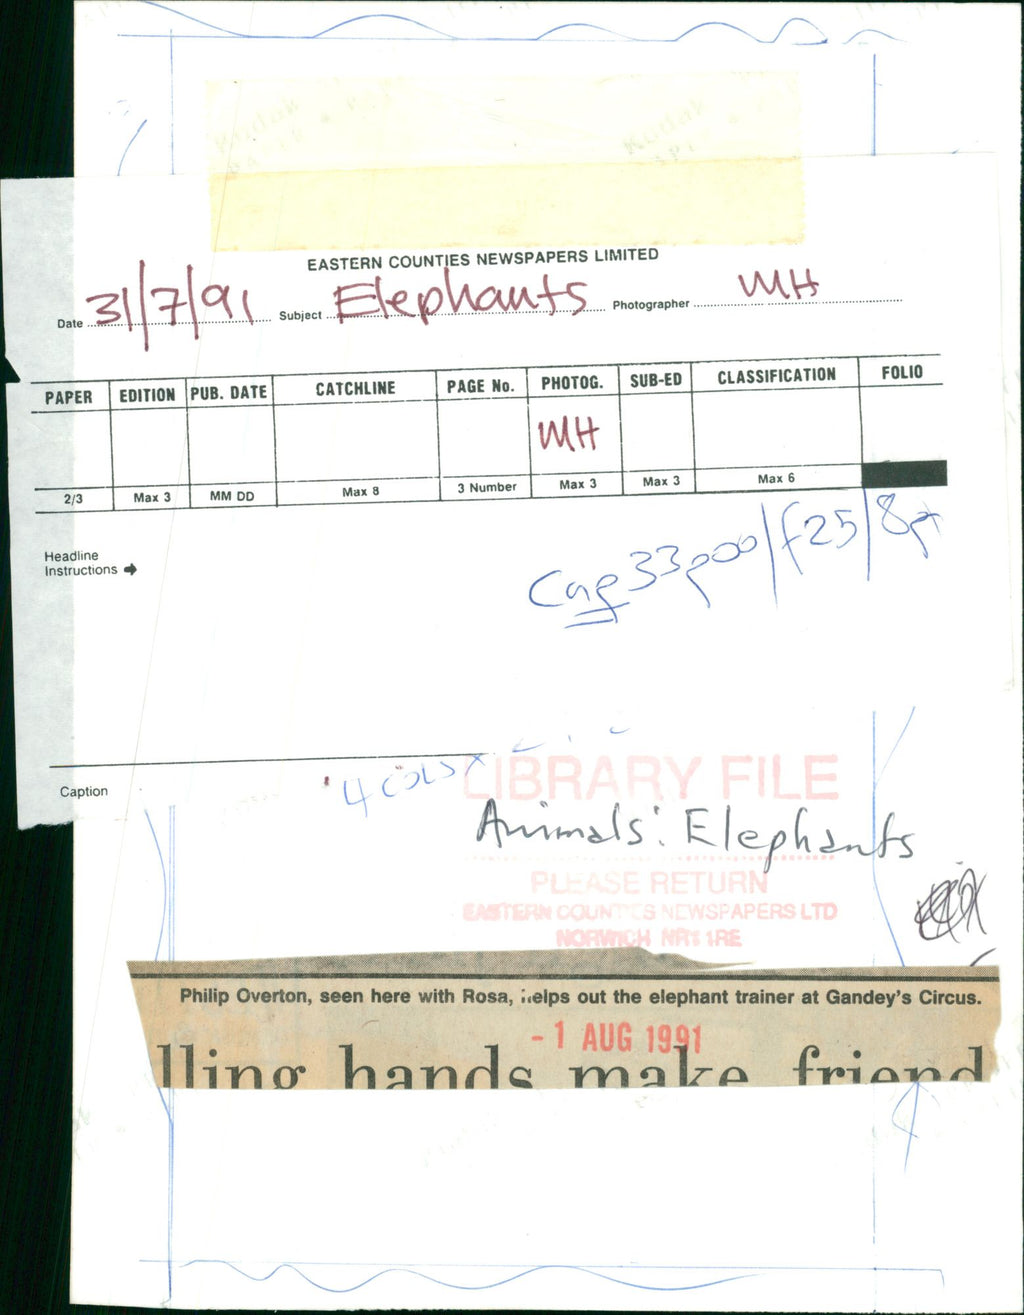 EASTERN COUNTIES NEWSPAPERS LIMITED
Date 31/7/91 Subject Elephants Photographer MH
PAPER EDITION PUB. DATE CATCHLINE PAGE No. PHOTOG. SUB-ED CLASSIFICATION FOLIO
MH
2/3 Max 3 MM DD Max 8 3 Number Max 3 Max 3 Max 6
Headline
Instructions
Cap 33p00/f25/8pt
Caption
4 COLS X
LIBRARY FILE
Animals: Elephants
PLEASE RETURN
EASTERN COUNTIES NEWSPAPERS LTD
NORWICH NR1 1RE
Philip Overton, seen here with Rosa, helps out the elephant trainer at Gandey's Circus.
- 1 AUG 1991
lling hands make friend